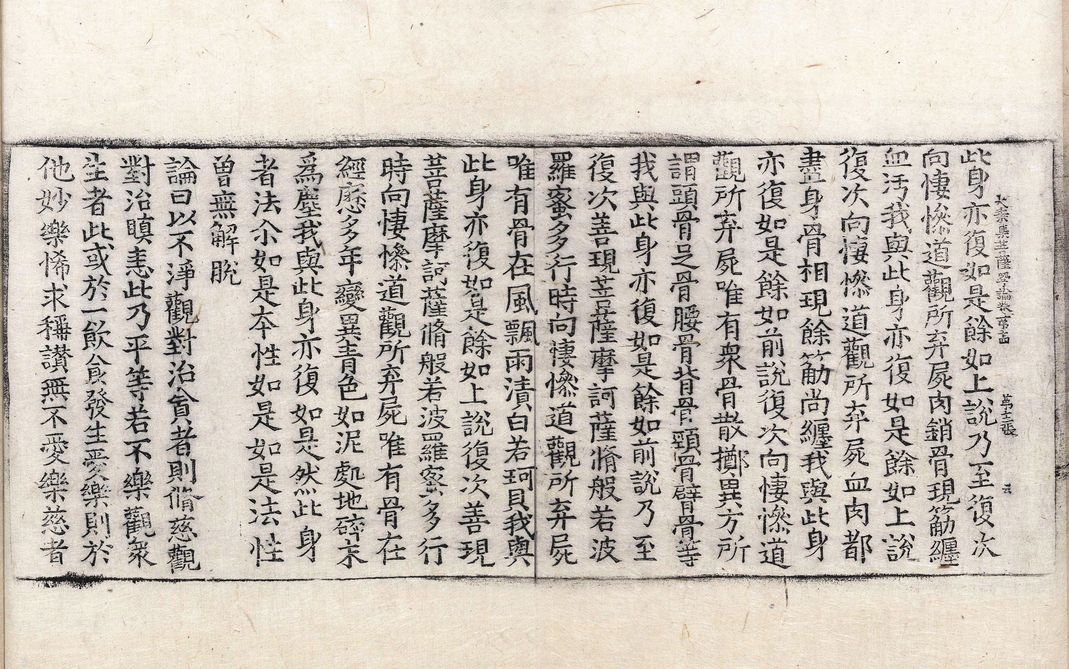 大乘集菩薩學論
此身亦復如是餘如上說乃至復次
向悽慘道觀所弃屍肉銷骨現筋纏
血汚我與此身亦復如是餘如上說
復次向悽慘道觀所弃屍血肉都
盡身骨相現餘筋尚纏我與此身
亦復如是餘如前說復次向悽慘道
觀所弃屍唯有衆骨散擲異方所
謂頭骨足骨腰骨背骨頸骨臂骨等
我與此身亦復如是餘如前說乃至
復次善現菩薩摩訶薩脩般若波
羅蜜多行時向悽慘道觀所弃屍
唯有骨在風飄雨漬白若珂貝我與
此身亦復如是餘如上說復次善現
菩薩摩訶薩脩般若波羅蜜多行
時向悽慘道觀所弃屍唯有骨在
經歷多年變異青色如泥處地碎末
爲塵我與此身亦復如是然此身
者法尒如是本性如是如是法性
曾無解脫
論曰以不淨觀對治貪者則脩慈觀
對治瞋恚此乃平等若不樂觀衆
生者此或於一飲食發生愛樂則於
他妙樂悕求稱讃無不愛樂慈者